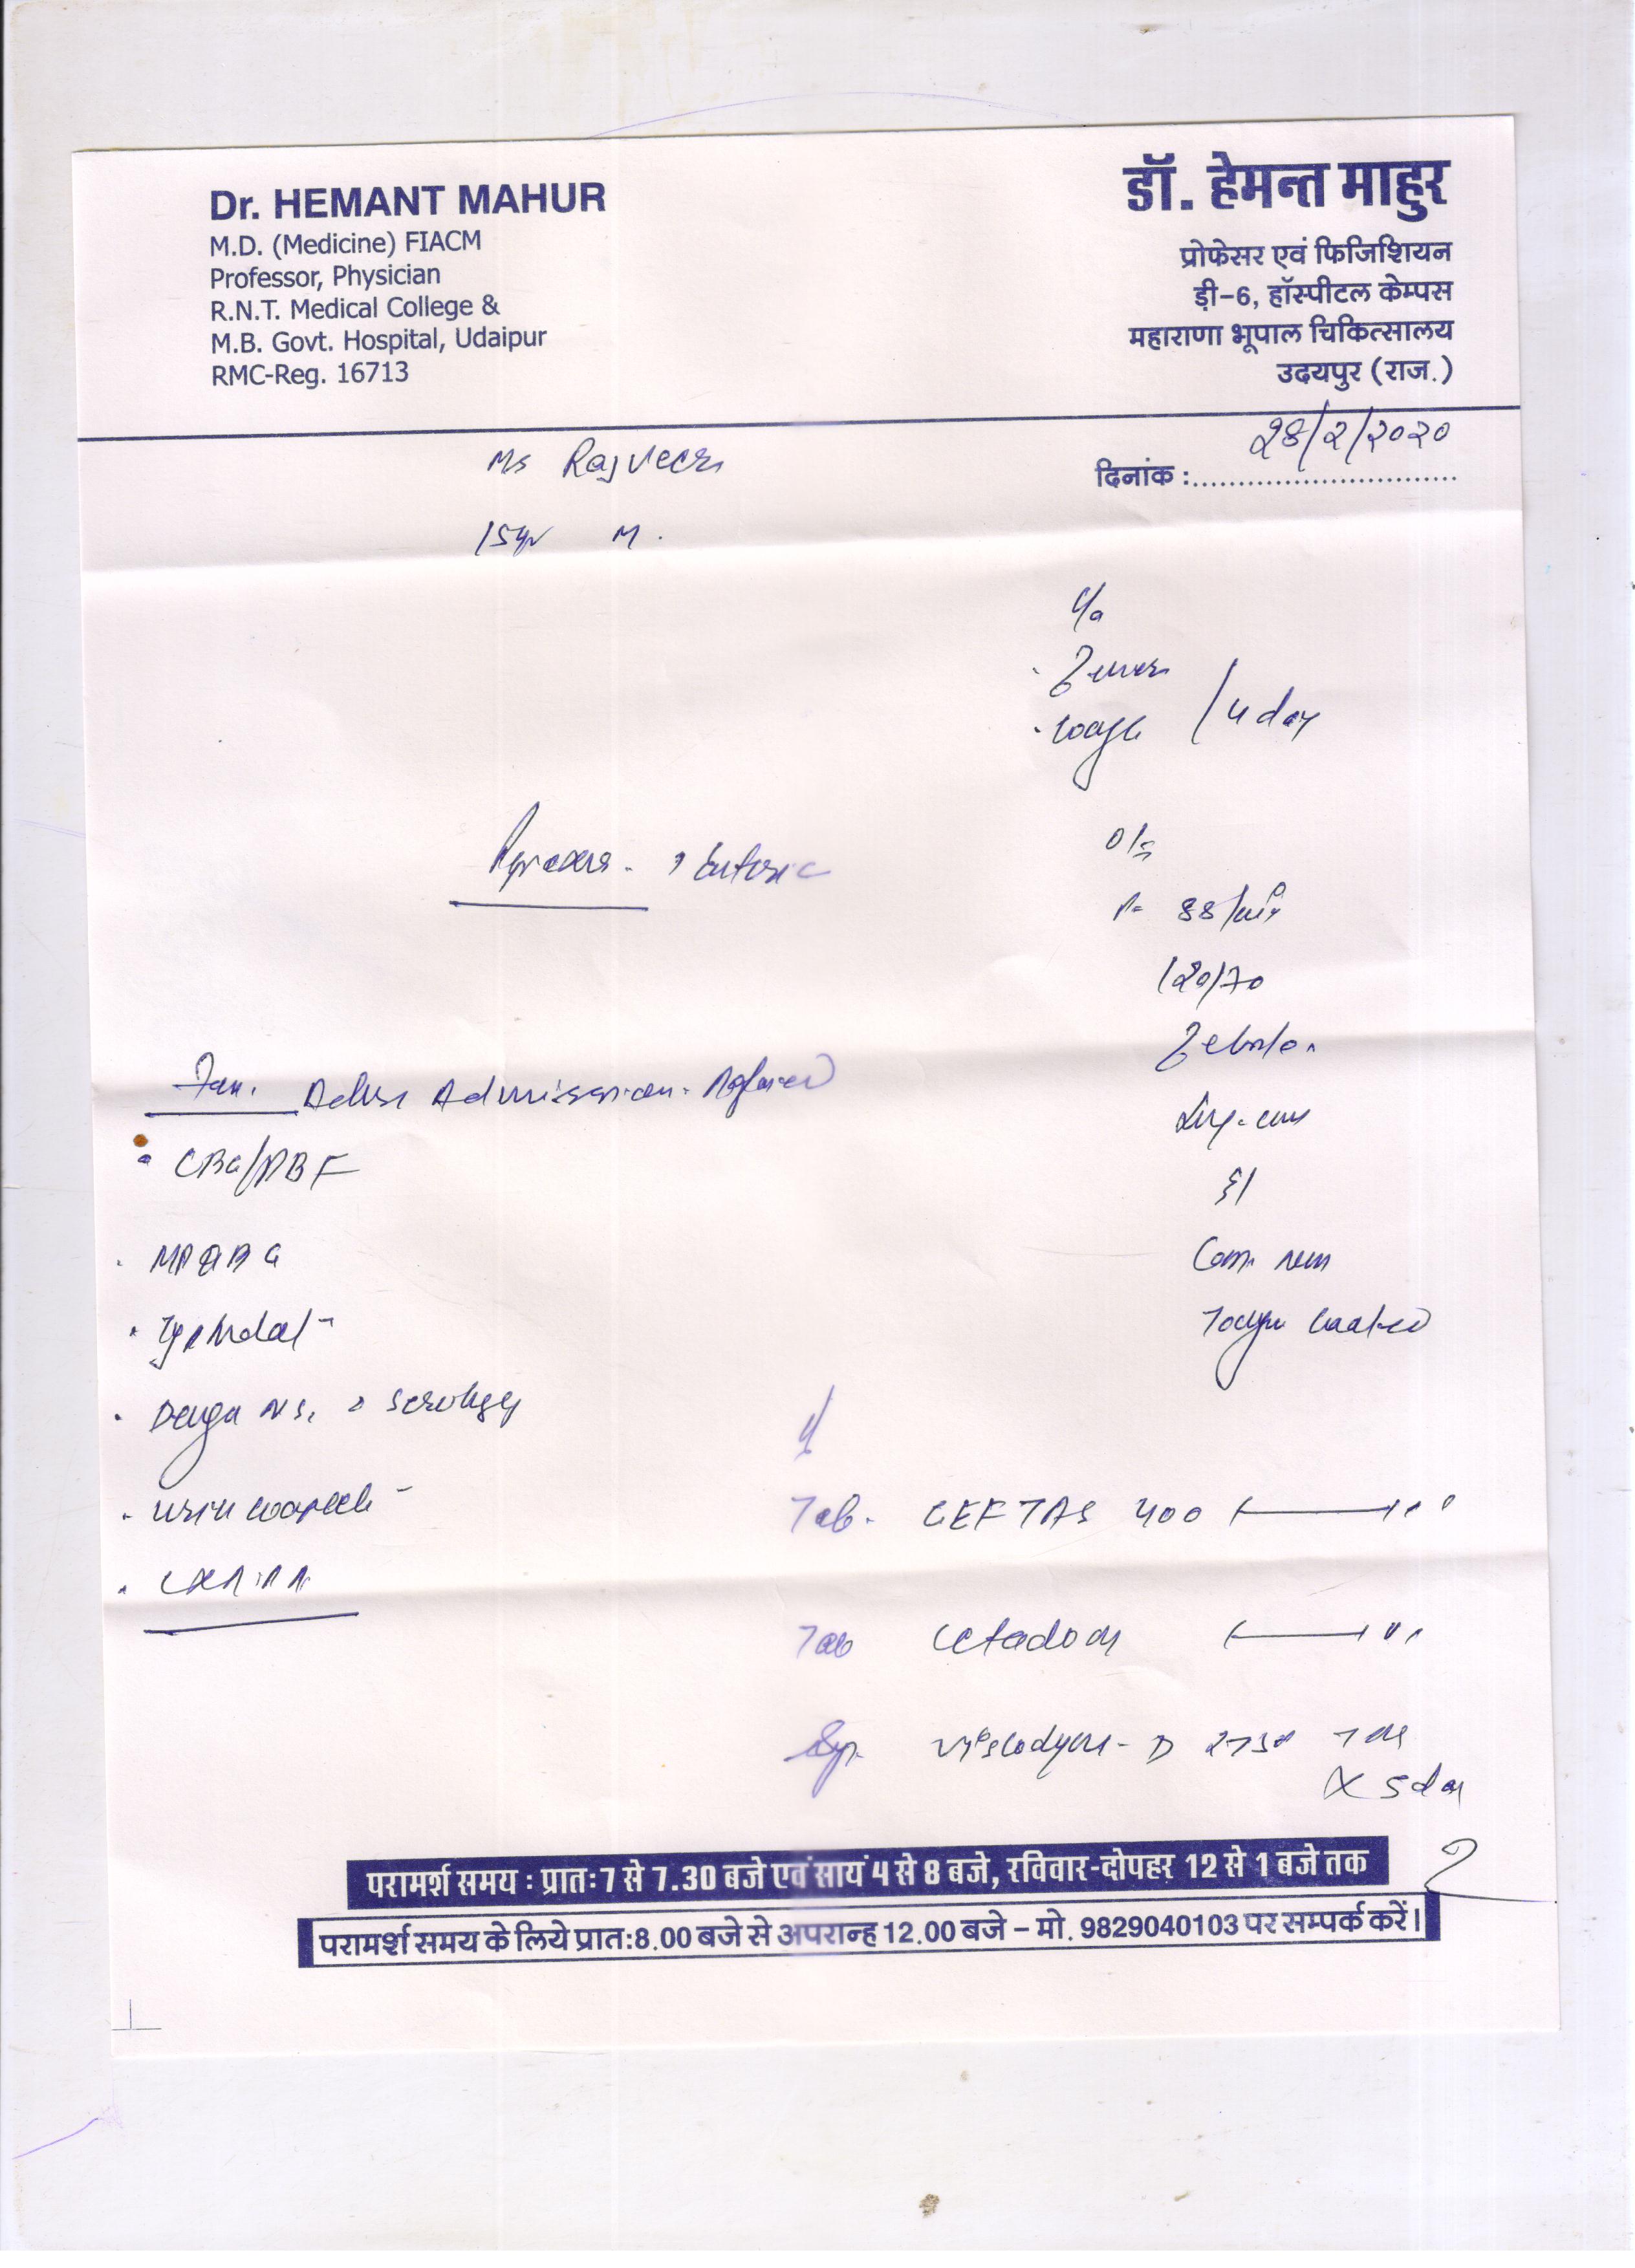 Dr. HEMANT MAHUR
M.D. (Medicine) FIACM
Professor, Physician
R.N.T. Medical College &
M.B. Govt. Hospital, Udaipur
RMC-Reg. 16713
डॉ. हेमन्त माहुर
प्रोफेसर एवं फिजिशियन
ड़ी-6, हॉस्पीटल केम्पस
महाराणा भूपाल चिकित्सालय
उदयपुर (राज.)
दिनांक : 28/2/2020
Rajveer
15yr M.
c/o
Fever
Cough / 4 day
O/E
P- 88/min
120/70
Febrile
Pyrexia - ? Enteric
Adv Admission - Refused
CBC/PBF
MPQBC
Typhidot
Dengu NS1 Serology
Urin Complete
CXR:PA
Tab. CEFTAS 400
Tab
Syp. Viscodyne - D
x 5 day
परामर्श समय : प्रातः 7 से 7.30 बजे एवं सायं 4 से 8 बजे, रविवार-दोपहर 12 से 1 बजे तक
परामर्श समय के लिये प्रात:8.00 बजे से अपरान्ह 12.00 बजे – मो. 9829040103 पर सम्पर्क करें।